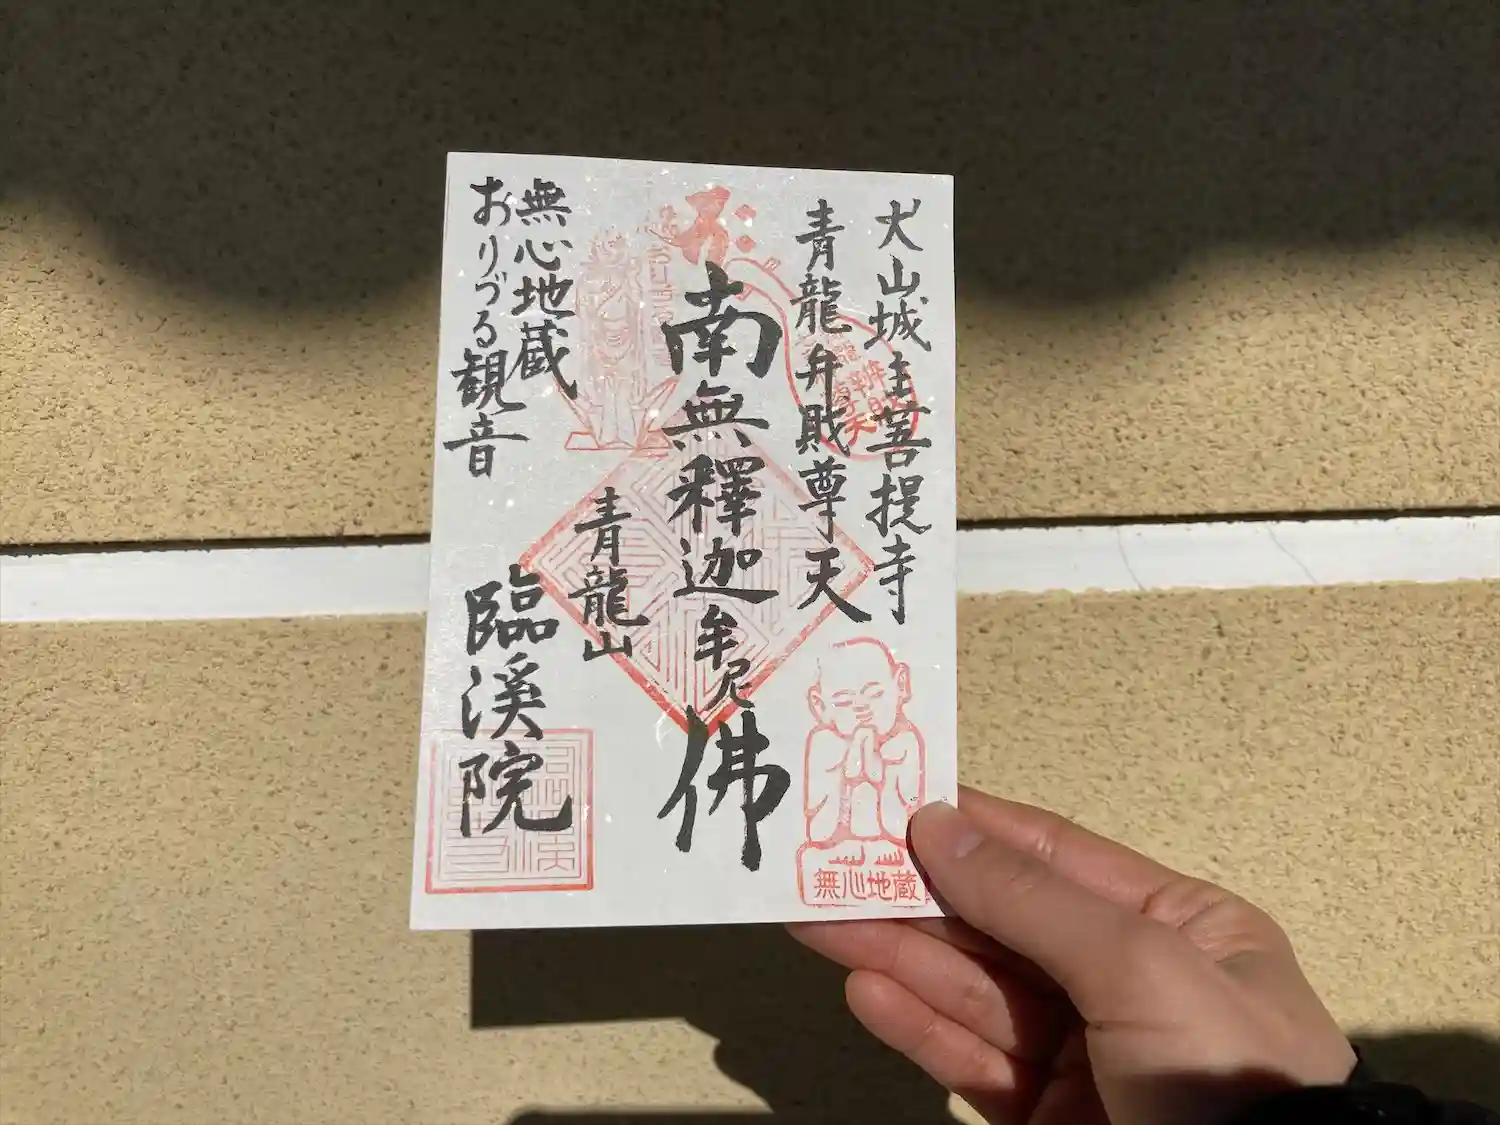 犬山城主菩提寺
青龍弁財尊天
南無釋迦牟尼佛
青龍山
無心地蔵
おりづる観音
臨溪院
無心地蔵